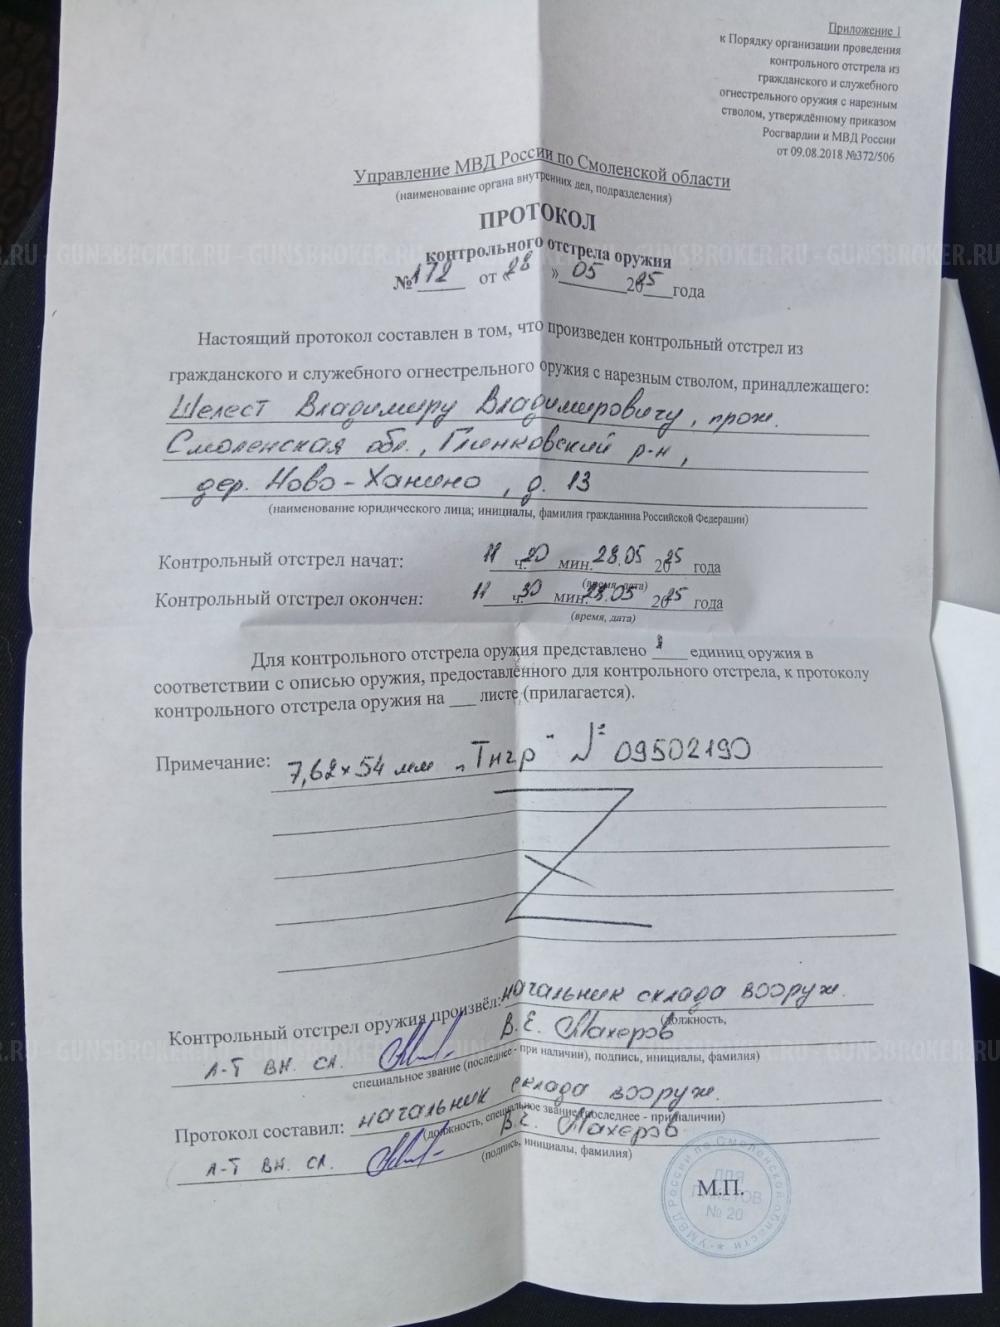 Приложение 1
к Порядку организации проведения
контрольного отстрела из
гражданского и служебного
огнестрельного оружия с нарезным
стволом, утверждённому приказом
Росгвардии и МВД России
от 09.08.2018 №372/506
Управление МВД России по Смоленской области
(наименование органа внутренних дел, подразделения)
ПРОТОКОЛ
контрольного отстрела оружия
№ 172 от « 28 » 05 2025 года
Настоящий протокол составлен в том, что произведен контрольный отстрел из
гражданского и служебного огнестрельного оружия с нарезным стволом, принадлежащего:
Шелест Владимиру Владимировичу, прож.
Смоленская обл., Глинковский р-н,
дер. Ново-Ханино, д. 13
(наименование юридического лица; инициалы, фамилия гражданина Российской Федерации)
Контрольный отстрел начат: 11 ч. 20 мин. 28.05 2025 года
(время, дата)
Контрольный отстрел окончен: 11 ч. 30 мин. 28.05 2025 года
(время, дата)
Для контрольного отстрела оружия представлено 1 единиц оружия в
соответствии с описью оружия, предоставленного для контрольного отстрела, к протоколу
контрольного отстрела оружия на ___ листе (прилагается).
Примечание: 7,62х54 мм „Тигр" № 09502190
Контрольный отстрел оружия произвёл: начальник склада вооруж.
(должность,
л-т вн. сл. В.Е. Махеров
специальное звание (последнее - при наличии), подпись, инициалы, фамилия)
Протокол составил: начальник склада вооруж.
(должность, специальное звание (последнее - при наличии)
л-т вн. сл. В.Е. Махеров
(подпись, инициалы, фамилия)
М.П.
УМВД России по Смоленской области
№ 20
GUNSBROKER.RU - GUNSBROKER.RU - GUNSBROKER.RU - GUNSBROKER.RU